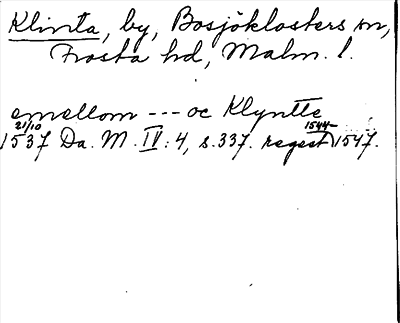 Klinta, by, Bosjöklosters sn,
Frosta hd, Malm. l.
emellom --- oc Klyntte
21/10 1544
1537 Da. M. IV: 4, s. 337. regest 1547.